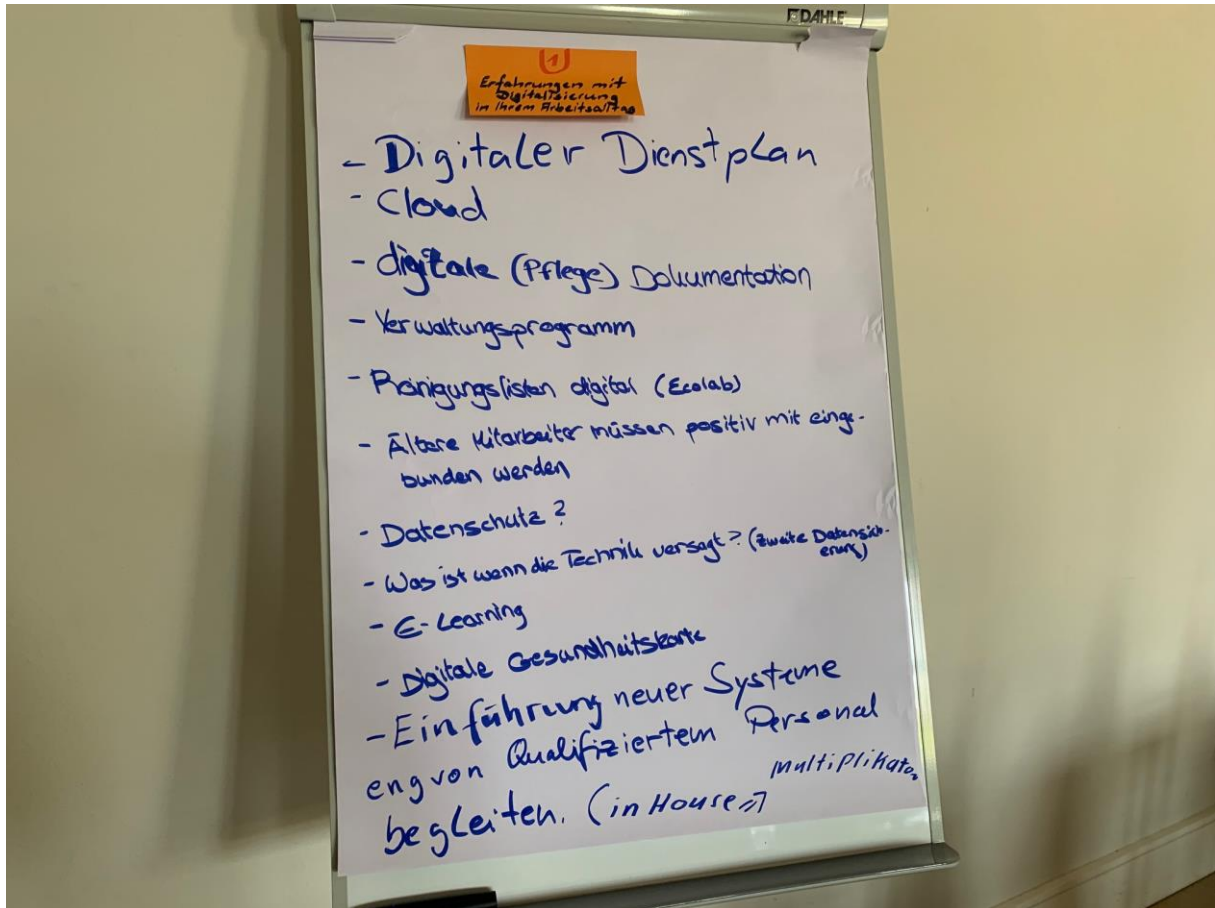 DAHLE
1
Erfahrungen mit
Digitalisierung
in Ihrem Arbeitsalltag
- Digitaler Dienstplan
- Cloud
- digitale (Pflege) Dokumentation
- Verwaltungsprogramm
- Reinigungslisten digital (Ecolab)
- Ältere Mitarbeiter müssen positiv mit einge-
bunden werden
- Datenschutz?
- Was ist wenn die Technik versagt? (zweite Datensich-
erung)
- E-Learning
- Digitale Gesundheitskarte
- Einführung neuer Systeme
eng von Qualifiziertem Personal
begleiten. (in House) Multiplikator